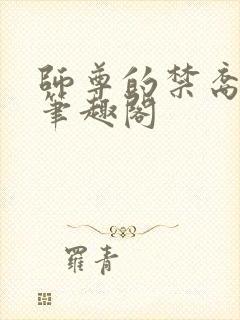 師尊的禁脔
筆趣閣
羅青